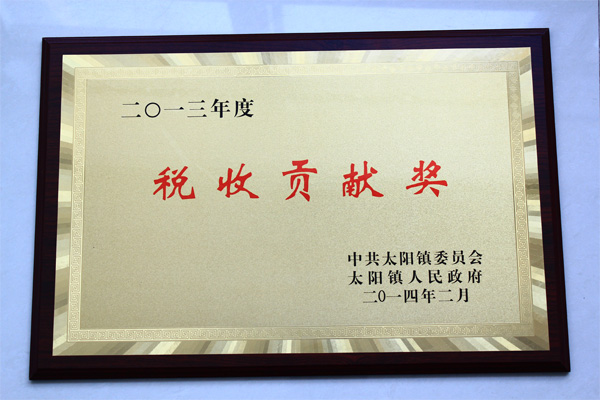 二〇一三年度
税收贡献奖
中共太阳镇委员会
太阳镇人民政府
二〇一四年二月